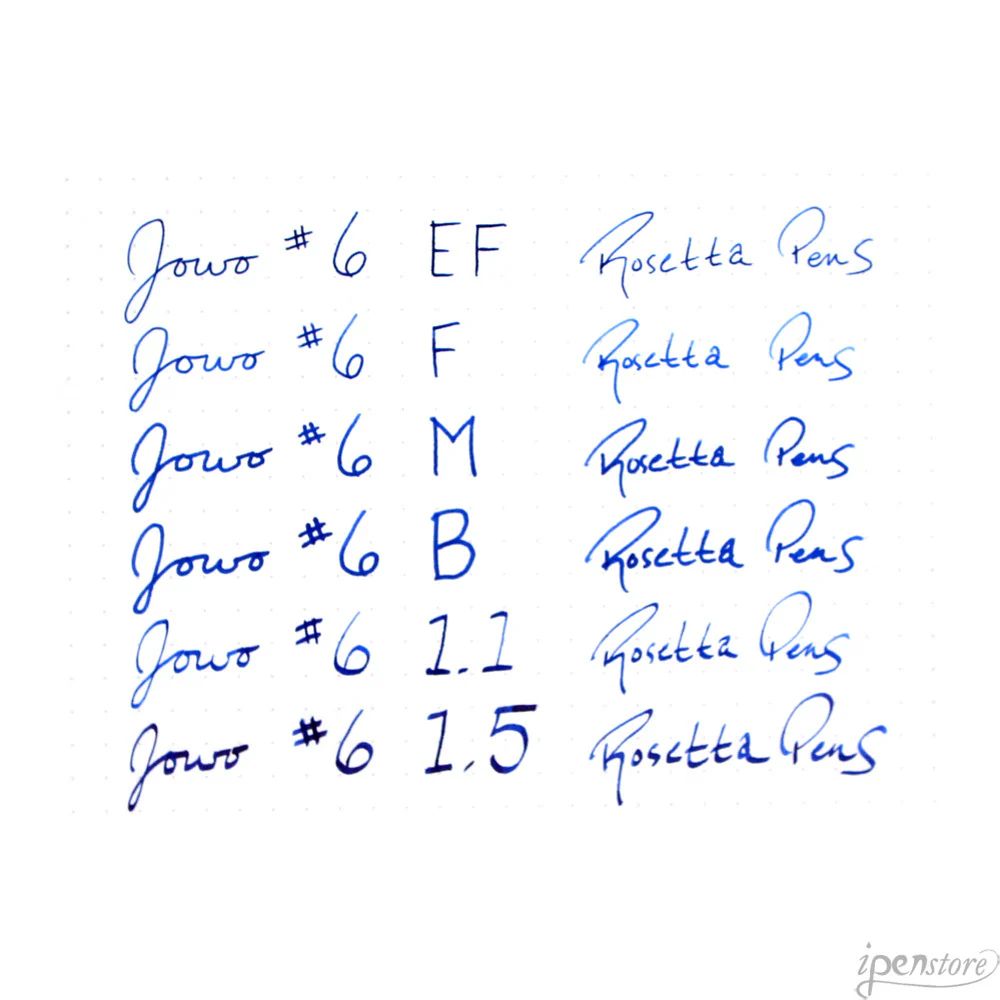 Jowo #6 EF Rosetta Pens
Jowo #6 F Rosetta Pens
Jowo #6 M Rosetta Pens
Jowo #6 B Rosetta Pens
Jowo #6 1.1 Rosetta Pens
Jowo #6 1.5 Rosetta Pens
ipenstore